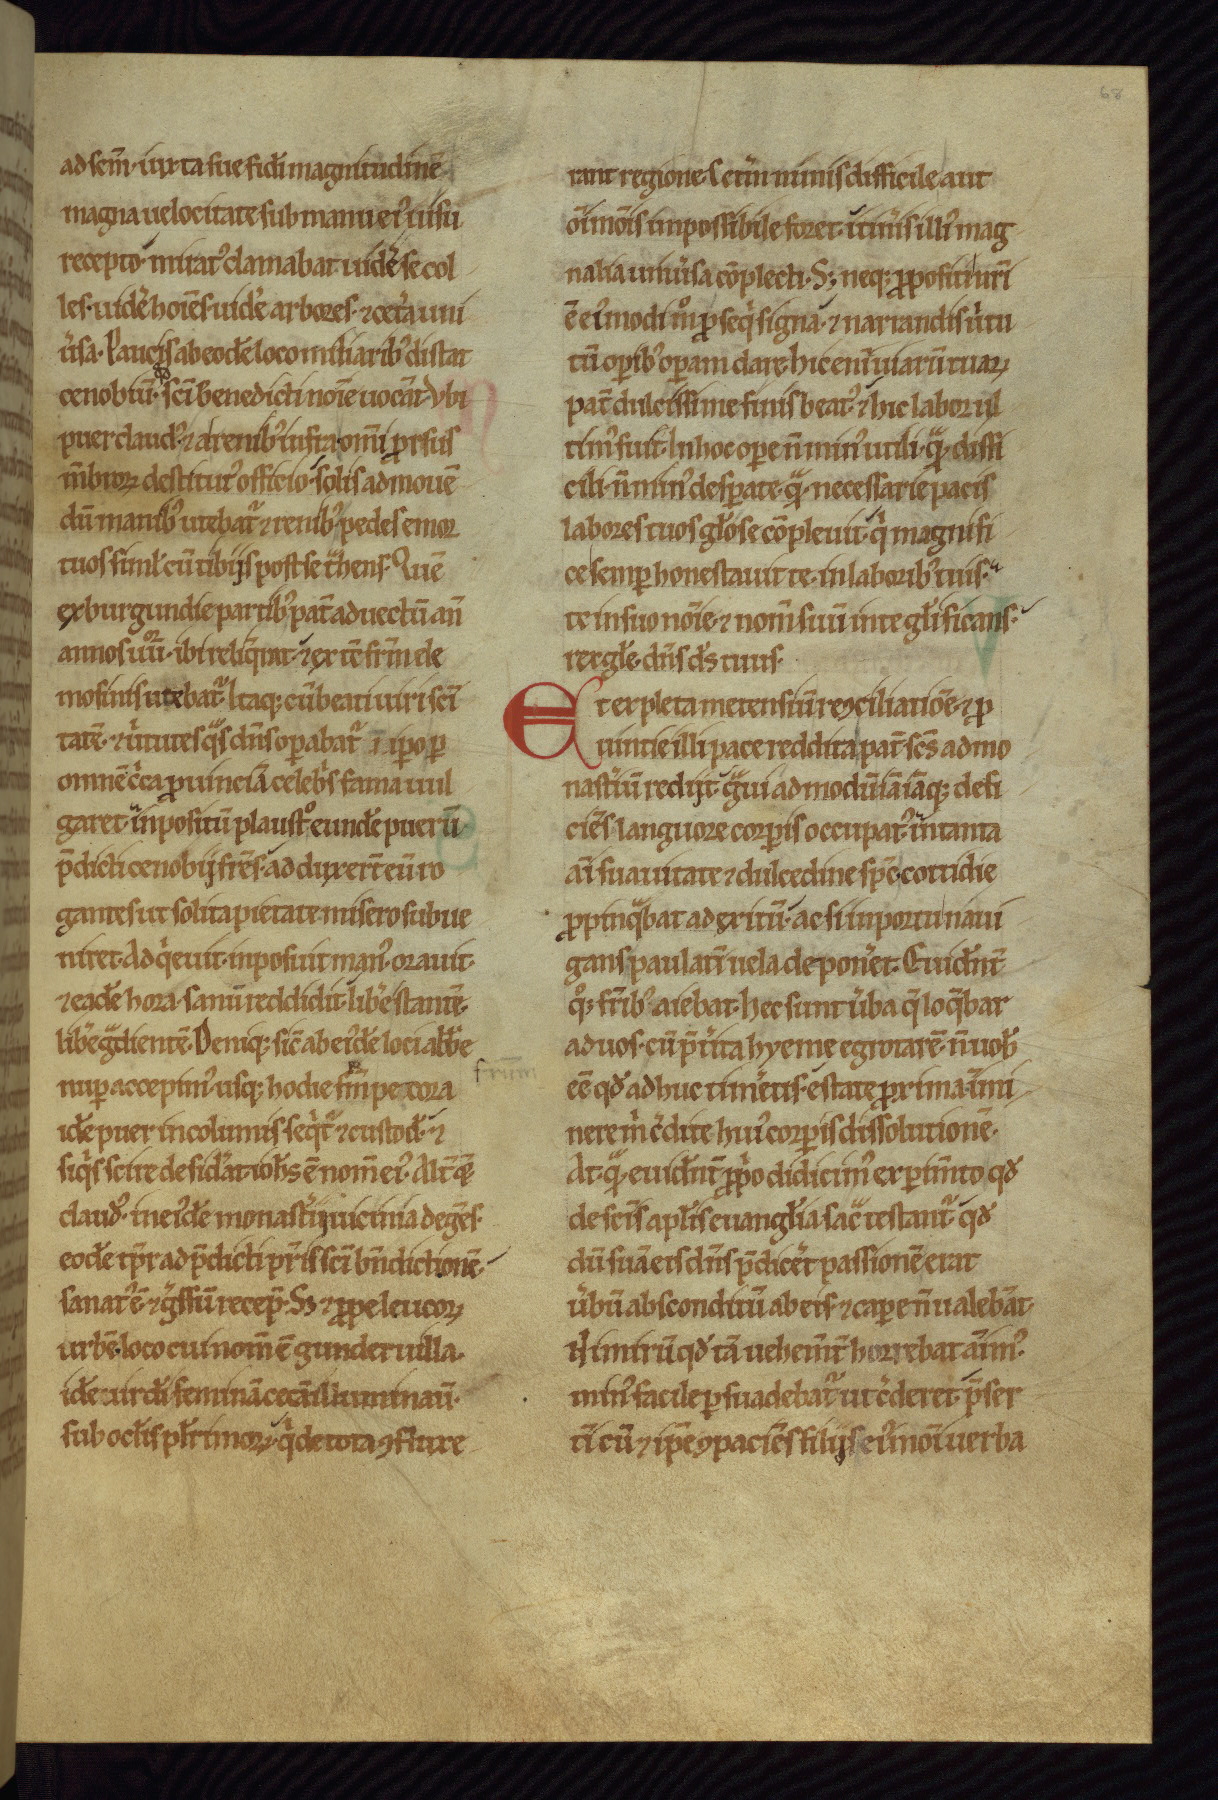 68
ad sem̄· iux ta sue fidi magnitudinē
magna uelocitate sub manu eiꝰ uisu
recepto· miratꝰ clamabat uidēse col
les· uidē hoīes· uidē arbores· ⁊ cet̄a uni
ūsa· Paucis ab eodē loco miliaribꝰ distat
cenobiū· sc̄i benedicti noīe uocāt· Vbi
puer claudꝰ· ⁊ a renibꝰ infra· om̄i prorsus
mēbroꝝ destitutꝰ officio· solis ad mouē
dū manibꝰ utebat᷑ ⁊ renibꝰ pedes emor
tuos simł cū tibijs post se t̄hens· Quē
ex burgundie partibꝰ pat̄ aduectū an̄
annos· ibi reliq̄rat· ⁊ ex tē fr̄m ele
mosinis utebat᷑· Itaq; cū beati uiri sc̄i
tatē· ⁊ ūtutes q̄s dn̄s opabat᷑ ī ipo ꝑ
omnē c̄ca ꝓuinciā celebs̄ fama uul
garet· inpositū plaustº eundē puerū
p̄dicti cenobij fr̄es· adduxer̄t eū ro
gantes ut solita pietate misero subue
niret· Adq̄euit· inposuit manꝰ· orauit·
⁊ eadē hora· sanū reddidit· libē stantē·
libē g̃dientē· Deniq; sic̄ ab eiꝰdē loci abb̄e
nuꝑ accepimꝰ usq; hodie fr̄m pecora
frūm
idē puer incolumis· seq̄t᷑ ⁊ custod̄· ⁊
siq̄s scire desid̄at· ioh̄s ē nom̄ eiꝰ· Alt̄ q̄ꝫ
claudꝰ· in eiꝰdē monast̄ij uicinia degēs·
eodē tp̄r ad p̄dicti pr̄is sc̄i bn̄dictionē·
sanatꝰ ē· ⁊ g̃ssū recep̄· Sꝫ ⁊ ꝓpe leucoꝝ
urbē· loco cui nom̄ ē gundet uilla·
idē uir dī feminā cecā illuminau̅·
sub oc̄lis pl̄rimoꝝ· q̄ de tota ꝯfluxe
rant regione· Cet̄ū nimis difficile aut
oīmōis impossibile foret· itin̄is illiꝰ mag
nalia uniūsa cōplecti· Sꝫ neq; ꝓpositi nr̄i
ē eiꝰmodi mº ꝓseq̄ signa· ⁊ narrandis ūtu
tū opibꝰ opam dare· hic eni uiarū tuaꝝ
pat̄ dulcissime finis beatꝰ· ⁊ hic labor ul
timꝰ fuit· In hoc ope n̄ minꝰ utili· q̃ꝫ diffi
cili· n̄ minꝰ desperate· q̃ꝫ necessarie pacis
labores tuos gl̄ose cōpleuit· q̄ magnifi
ce semꝑ honestauit te· in laboribꝰ tuis·
te in suo noīe· ⁊ nom̄ suū in te gl̄ificans·
rex gl̄e· dn̄s ds̄ tuus·
Expleta metensiū reꝯciliatiōe· ⁊ ꝓ
uintie illi pace reddita· pat̄ scs̄ ad mo
nast̄iū redijt· g̃ui admodū iā iāq; defi
ciēs languore corpis occupatꝰ in tanta
aī suauitate ⁊ dulcedine spe· cottidie
ꝓpinq̄bat ad exitū· ac si in portu naui
gans paulatī uela deponet· Euidēnt̄
qº; fr̄ibꝰ aiebat· hec sunt ūba q̄ loq̄bar
ad uos· cū p̄t̄ita hyeme egrotarē· n̄ uob̄
eē qd̄ ad huc tim̄etis· estate ꝓxima īmi
nere m̄ c̄dite huiꝰ corpis dissolutionē·
At q̄ꝫ euidēnt̄ ꝓꝓo didicimꝰ expim̄to qd̄
de sc̄is apl̄is euangl̄ia sac̄ testant᷑· qd̄
dū suā eis dn̄s p̄dicet̄ passionē erat
ūbū absconditū ab eis· ⁊ cape n̄ ualebāt·
Nimirū qd̄ tā uehem̄t̄ horrebat aīmꝰ·
minꝰ facile ꝑsuadebat᷑ ut c̄deret· p̄ser
tī cū ⁊ ip̄e ꝯpaciēs filijs· eiꝰmōi uerba